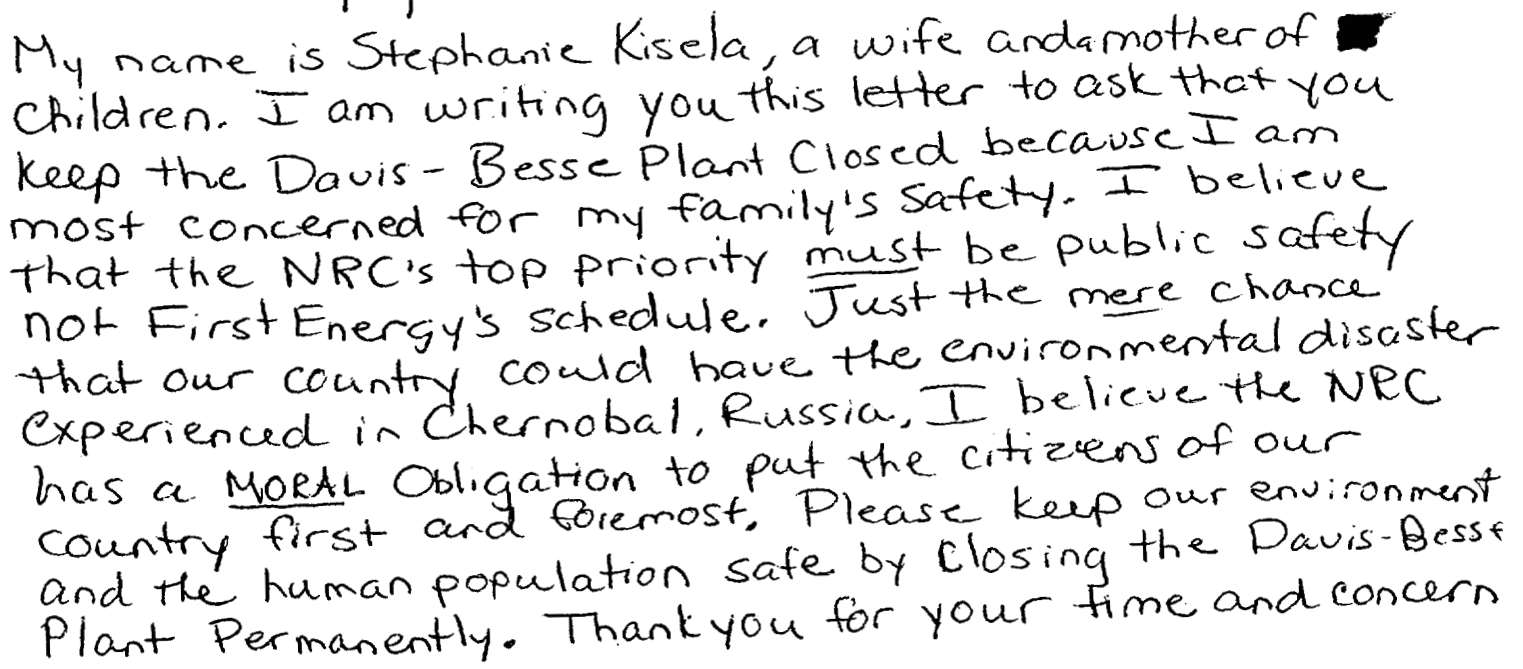 My name is Stephanie Kisela, a wife and a mother of
Children. I am writing you this letter to ask that you
keep the Davis-Besse Plant Closed because I am
most concerned for my family's safety. I believe
that the NRC's top priority must be public safety
not First Energy's schedule. Just the mere chance
that our country could have the environmental disaster
experienced in Chernobal, Russia, I believe the NRC
has a MORAL Obligation to put the citizens of our
country first and foremost. Please keep our environment
and the human population safe by Closing the Davis-Besse
Plant Permanently. Thank you for your time and concern